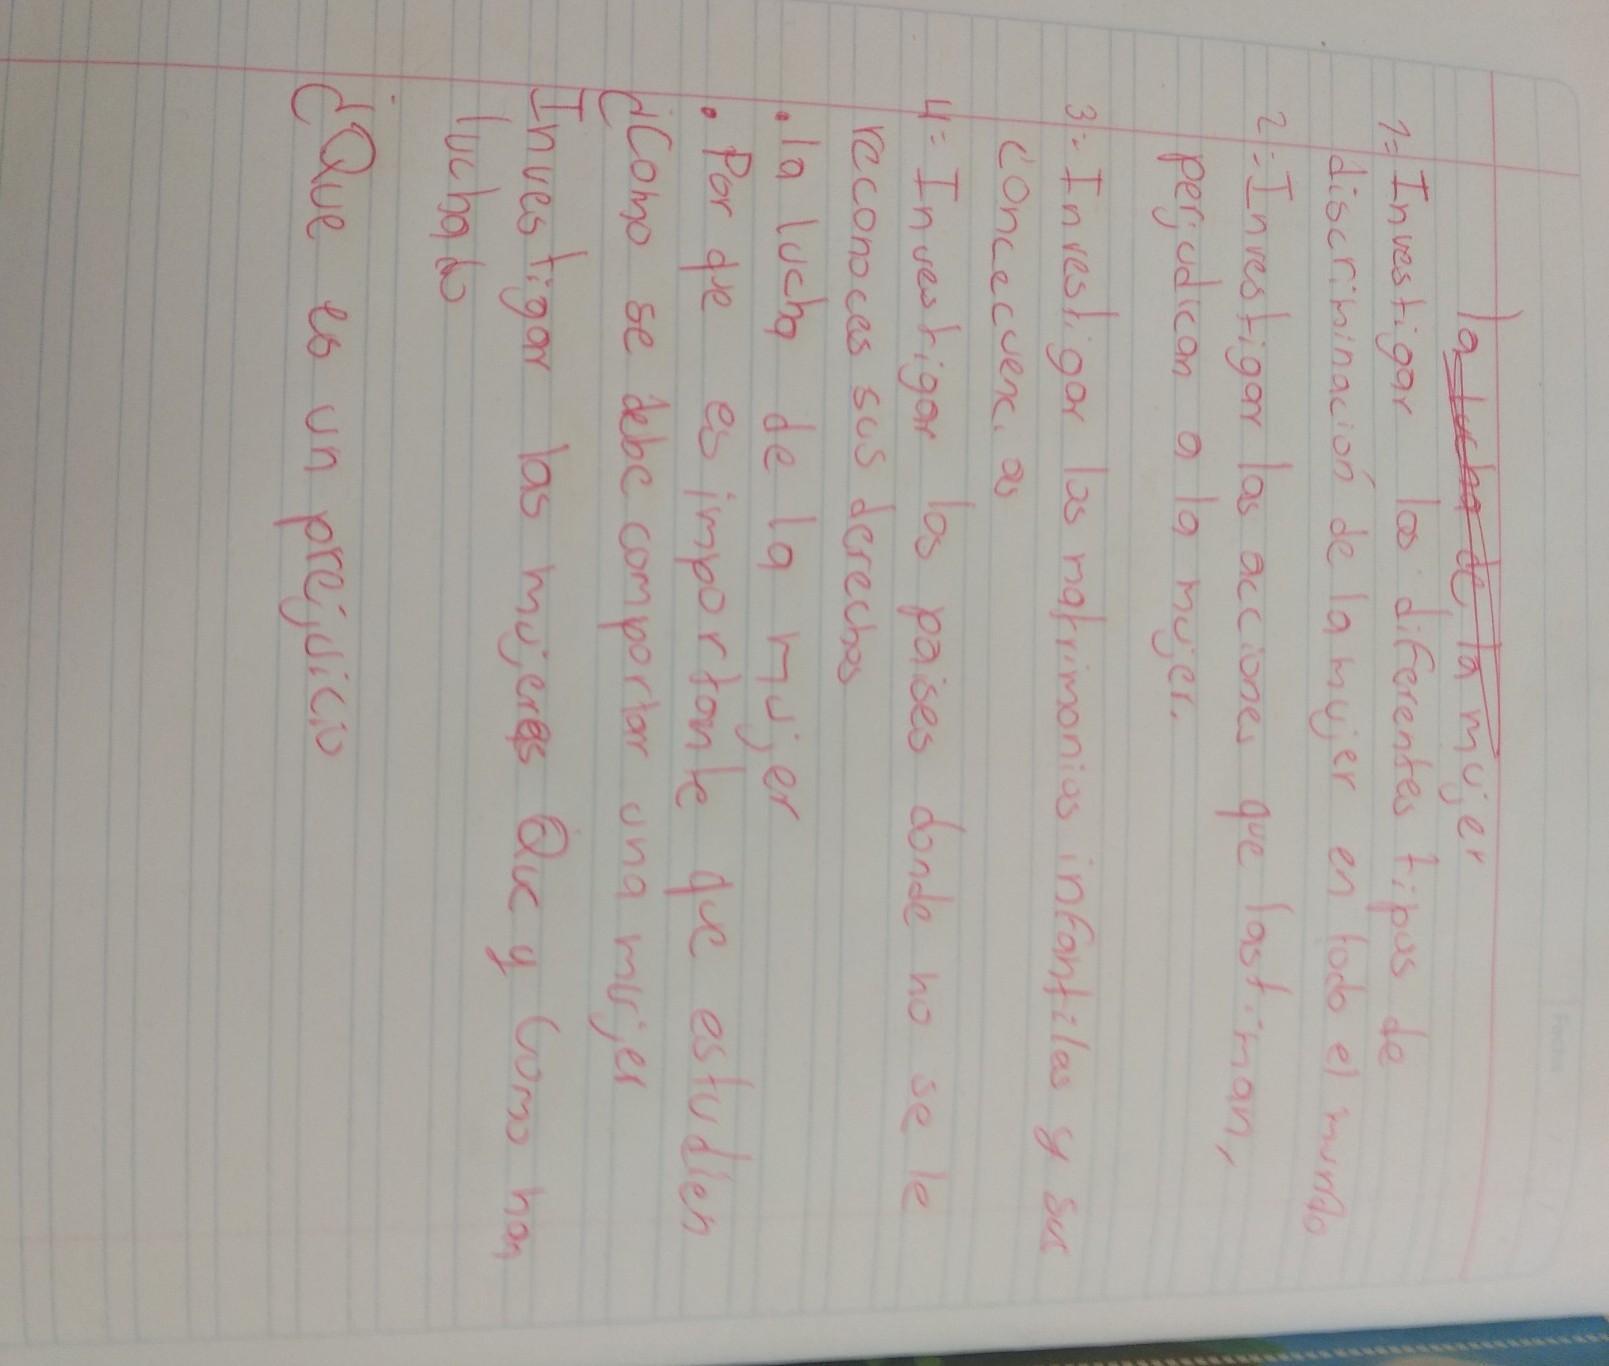 la lucha de la mujer
1= Investigar los diferentes tipos de
discriminación de la mujer en todo el mundo
2:- Investigar las acciones que lastiman,
perjudican a la mujer.
3:- Investigar los matrimonios infantiles y sus
concecuencias
4:- Investigar los paises donde no se le
reconoces sus derechos
• la lucha de la mujer
• Por que es importante que estudien
¿Como se debe comportar una mujer
Investigar las mujeres Que y Como han
luchado
¿Que es un prejuicio